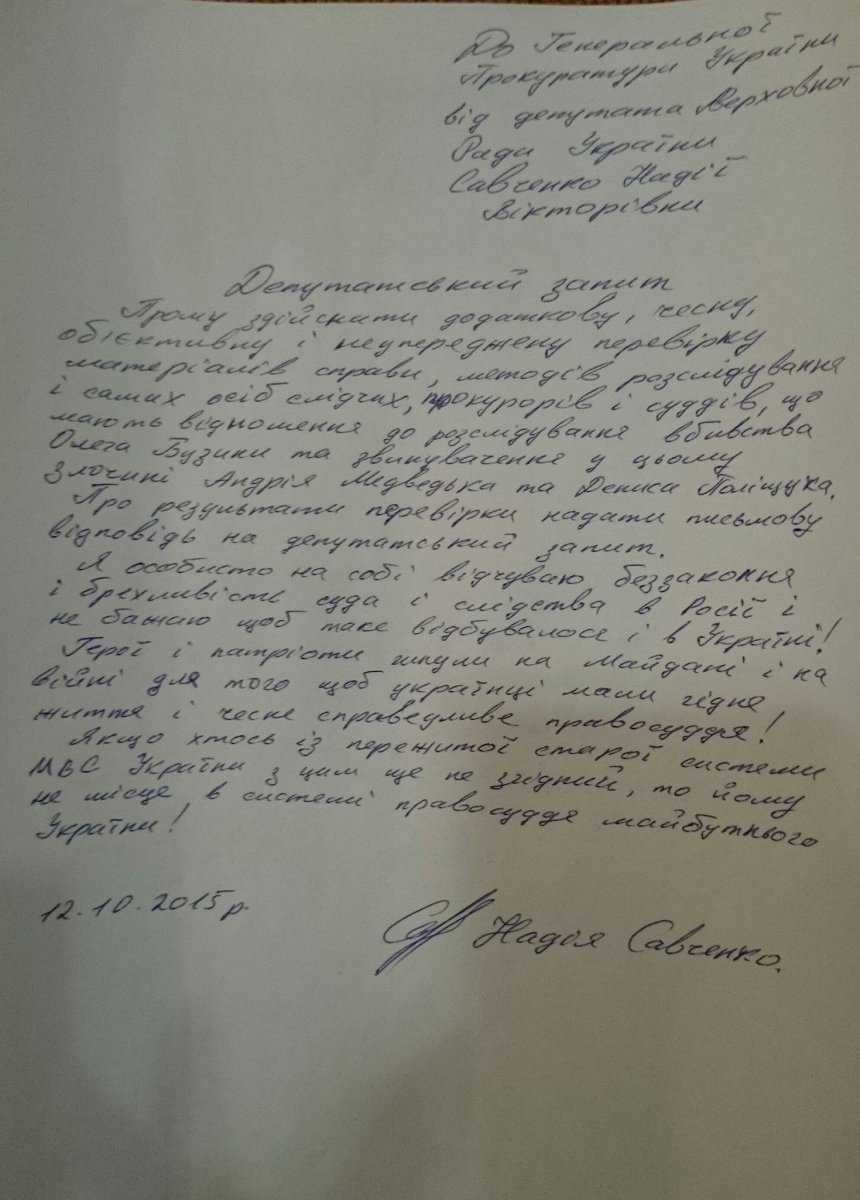 До Генеральної
Прокуратури України
від депутата Верховної
Ради України
Савченко Надії
Вікторівни
Депутатський запит
Прошу здійснити додаткову, чесну,
обієктивну і неупереджену перевірку
матеріалів справи, методів розслідування
і самих осіб слідчих, прокурорів і суддів, що
мають відношення до розслідування вбивства
Олега Бузини та звинувачення у цьому
злочині Андрія Медведька та Дениса Поліщука.
Про результати перевірки надати письмову
відповідь на депутатський запит.
Я особисто на собі відчуваю беззаконня
і брехливість суда і слідства в Росії і
не бажаю щоб таке відбувалося і в Україні!
Герої і патріоти гинули на Майдані і на
війні для того щоб українці мали гідне
життя і чесне справедливе правосуддя!
Якщо хтось із пережитої старої системи
МВС України з цим ще не згідний, то йому
не місце в системі правосуддя майбутнього
України!
12.10.2015р.
Надія Савченко.